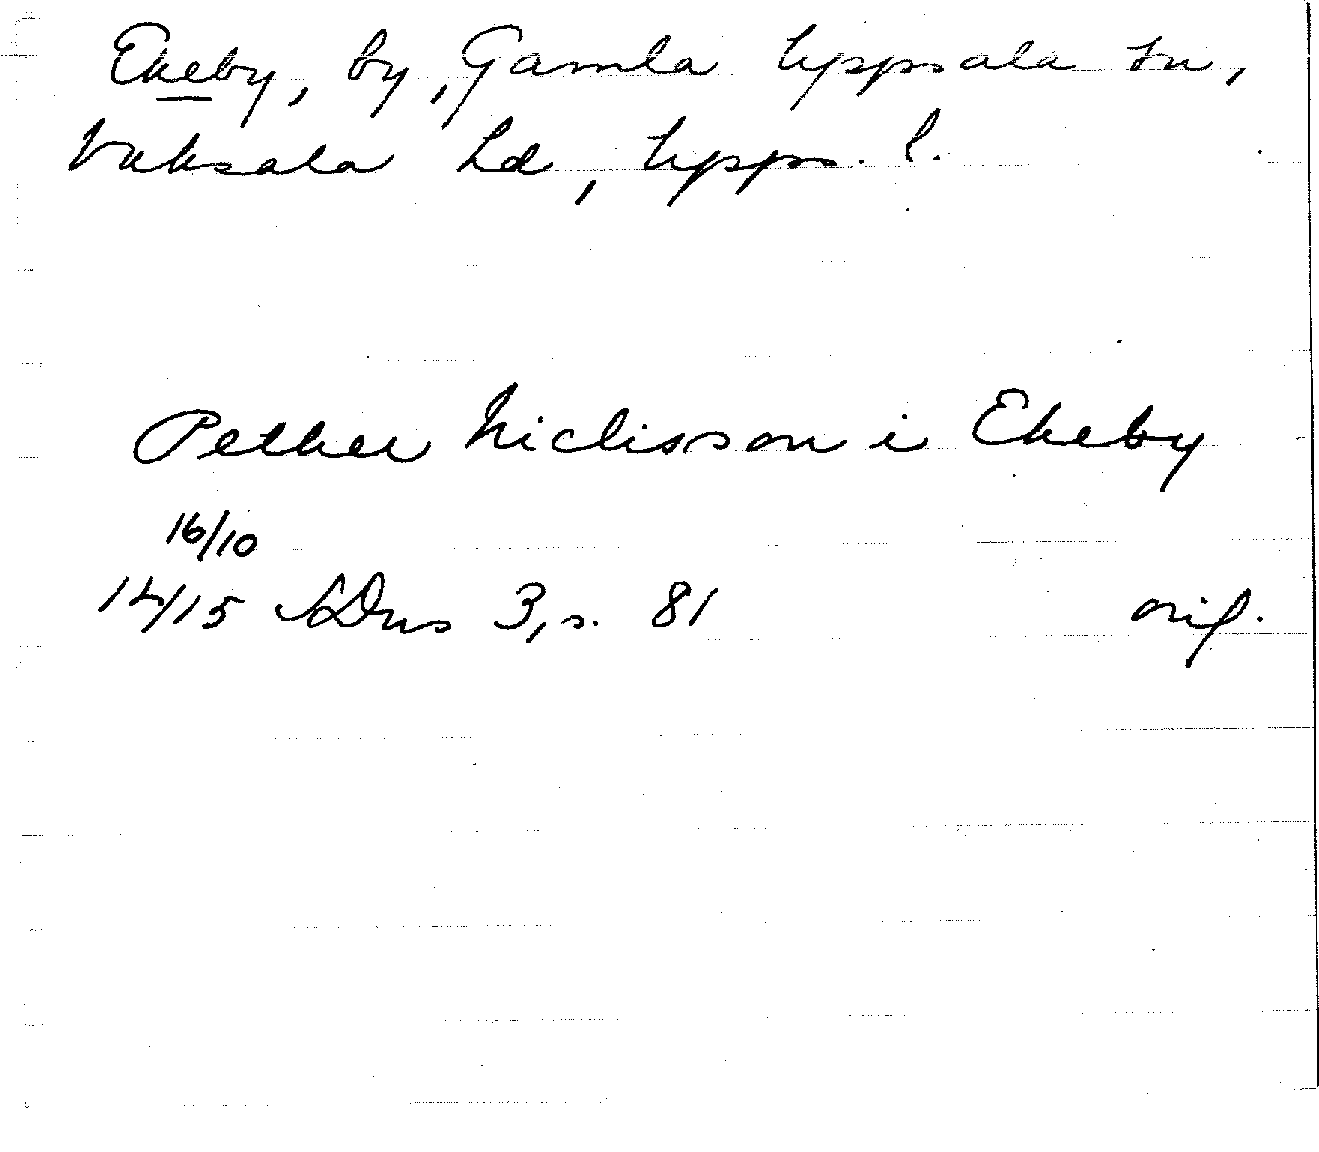 Ekeby, by, Gamla Uppsala sn,
Vaksala hd, Upps. l.
Pether Niclisson i Ekeby
16/10
14/15 SDns 3, s. 81 orig.